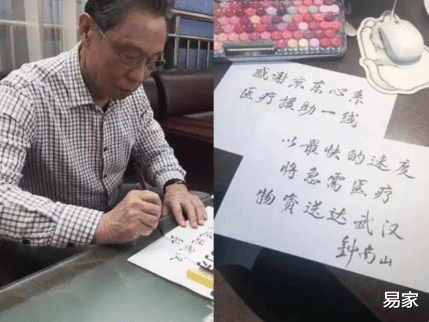 感谢京东心系
医疗援助一线
以最快的速度
将急需医疗
物资送达武汉
钟南山
易家